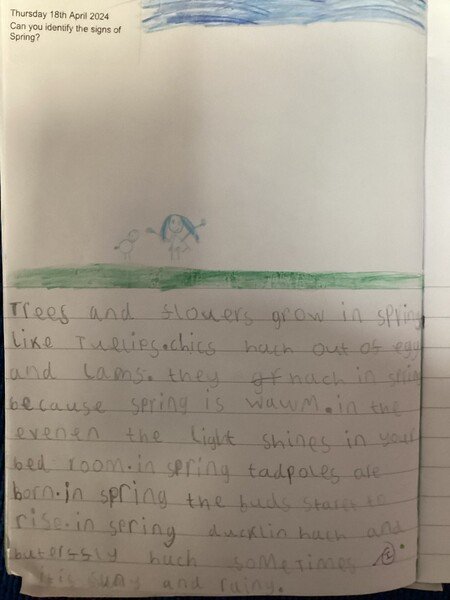 Thursday 18th April 2024
Can you identify the signs of
Spring?
Trees and flouers grow in spring
like Tullips.chics hach out of egg
and lams. they hach in spring
because spring is wawm.in the
evenen the light shines in your
bed room.in spring tadpoles are
born.in spring the buds staret to
rise.in spring ducklin hach and
buterfly hach sometimes
it is suny and rainy.